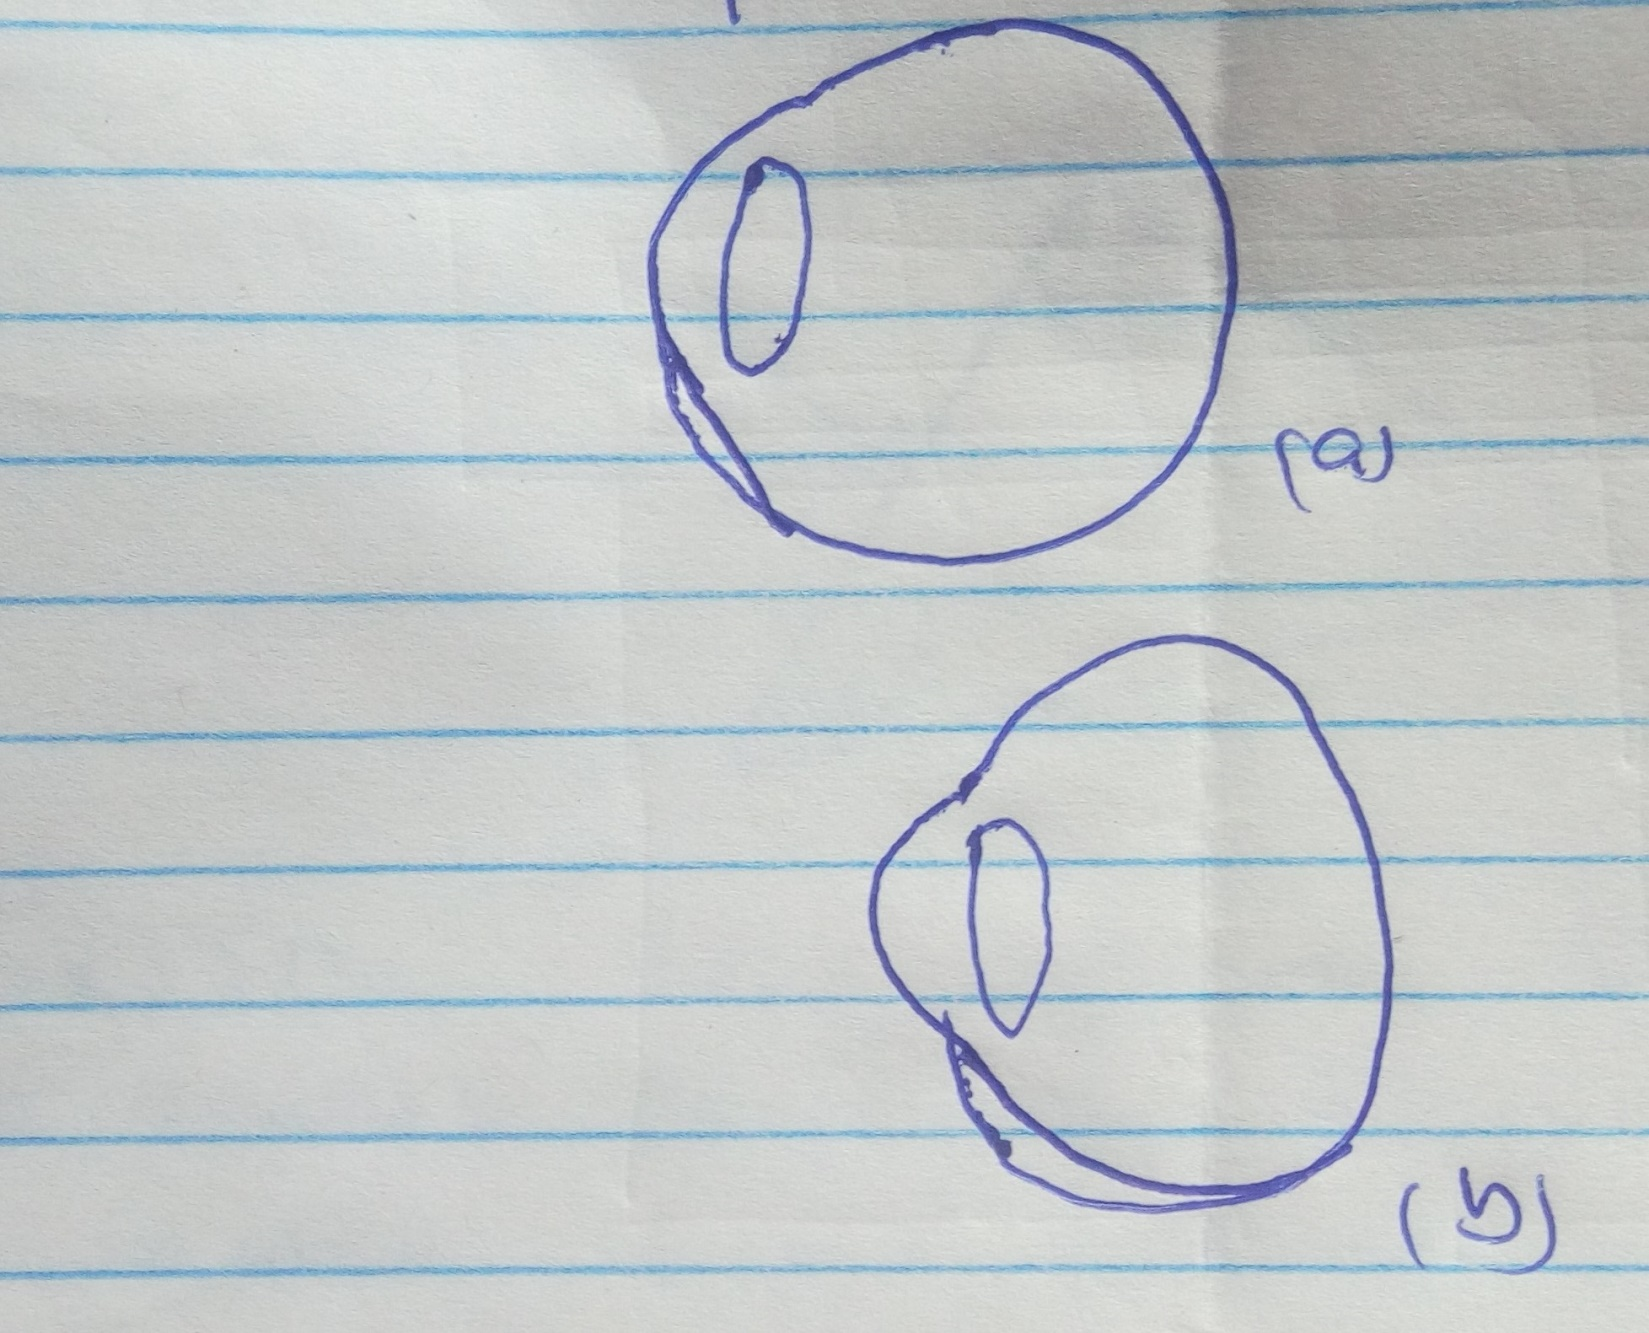 (a)
(b)